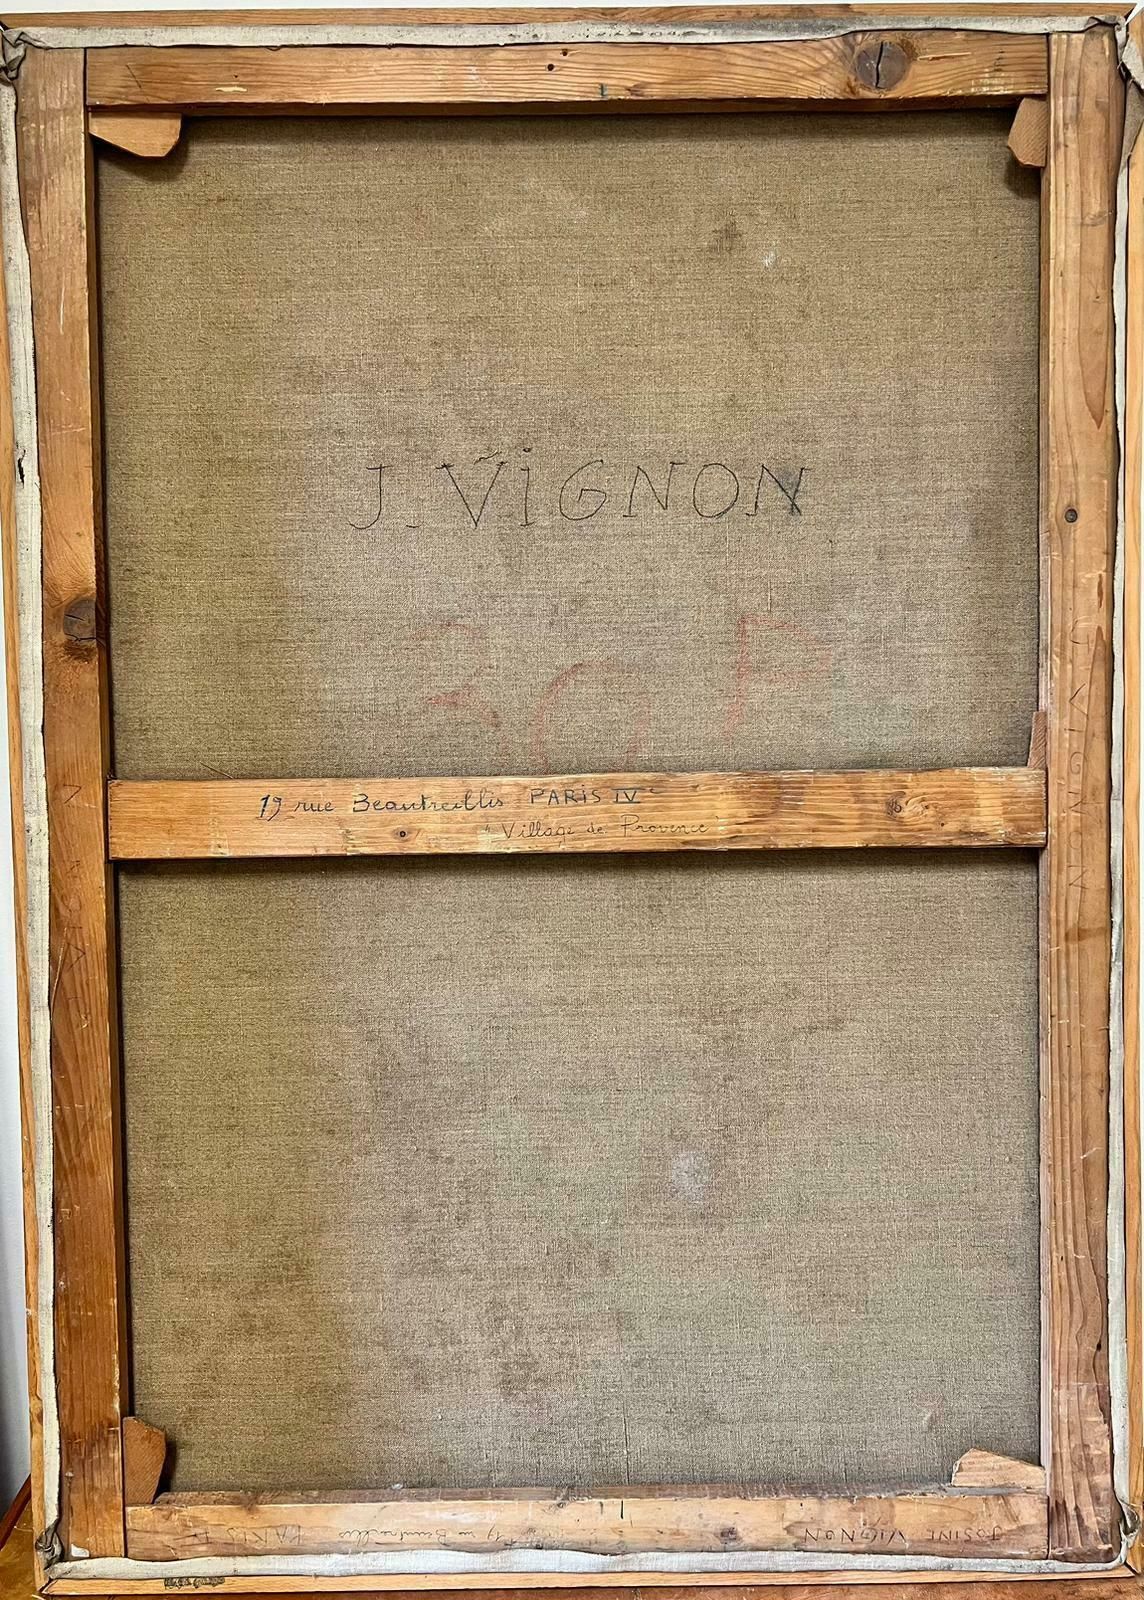 J. ViGNON
30 P
19 rue Beautreillis PARiS IVe
"Village de Provence"
J. VIGNON
JOSINE VIGNON 19 rue Beautreillis PARIS IV